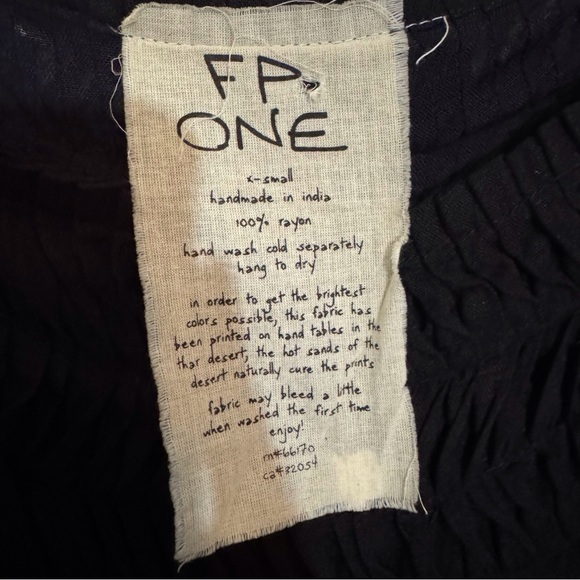 FP
ONE
x-small
handmade in india
100% rayon
hand wash cold separately
hang to dry
in order to get the brightest
colors possible, this fabric has
been printed on hand tables in the
thar desert, the hot sands of the
desert naturally cure the prints
fabric may bleed a little
when washed the first time
enjoy!
rn#66170
ca#32054